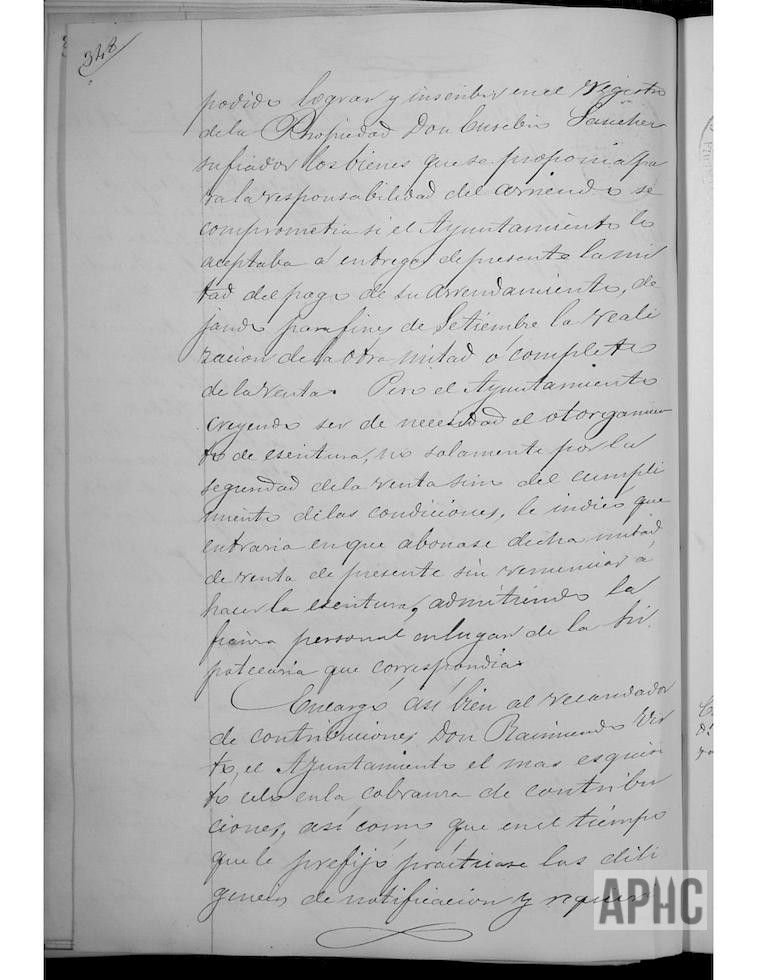 348
podido lograr y inscribir en el registro
de la Propiedad Don Eusebio Sanchez
su fiador los bienes que se proponia pa
ra la responsabilidad del arriendo se
comprometia si el Ayuntamiento lo
aceptaba á entregar de presente la mi
tad del pago de su arrendamiento, de
jando para fines de Setiembre la reali
zacion de la otra mitad ó completo
de la renta. Pero el Ayuntamiento
creyendo ser de necesidad el otorgamien
to de escritura, no solamente por la
seguridad de la renta sino del cumpli
miento de las condiciones, le indicó que
entraria en que abonase dicha mitad
de renta de presente sin renunciar á
hacer la escritura, admitiendo la
fianza personal en lugar de la hi
potecaria que correspondia.
Encargó así bien al recaudador
de contribuciones Don Raimundo
to, el Ayuntamiento el mas esquisi
to celo en la cobranza de contribu
ciones, así como que en el tiempo
que le prefijó practicase las dili
gencias de notificacion y requiri
APHC